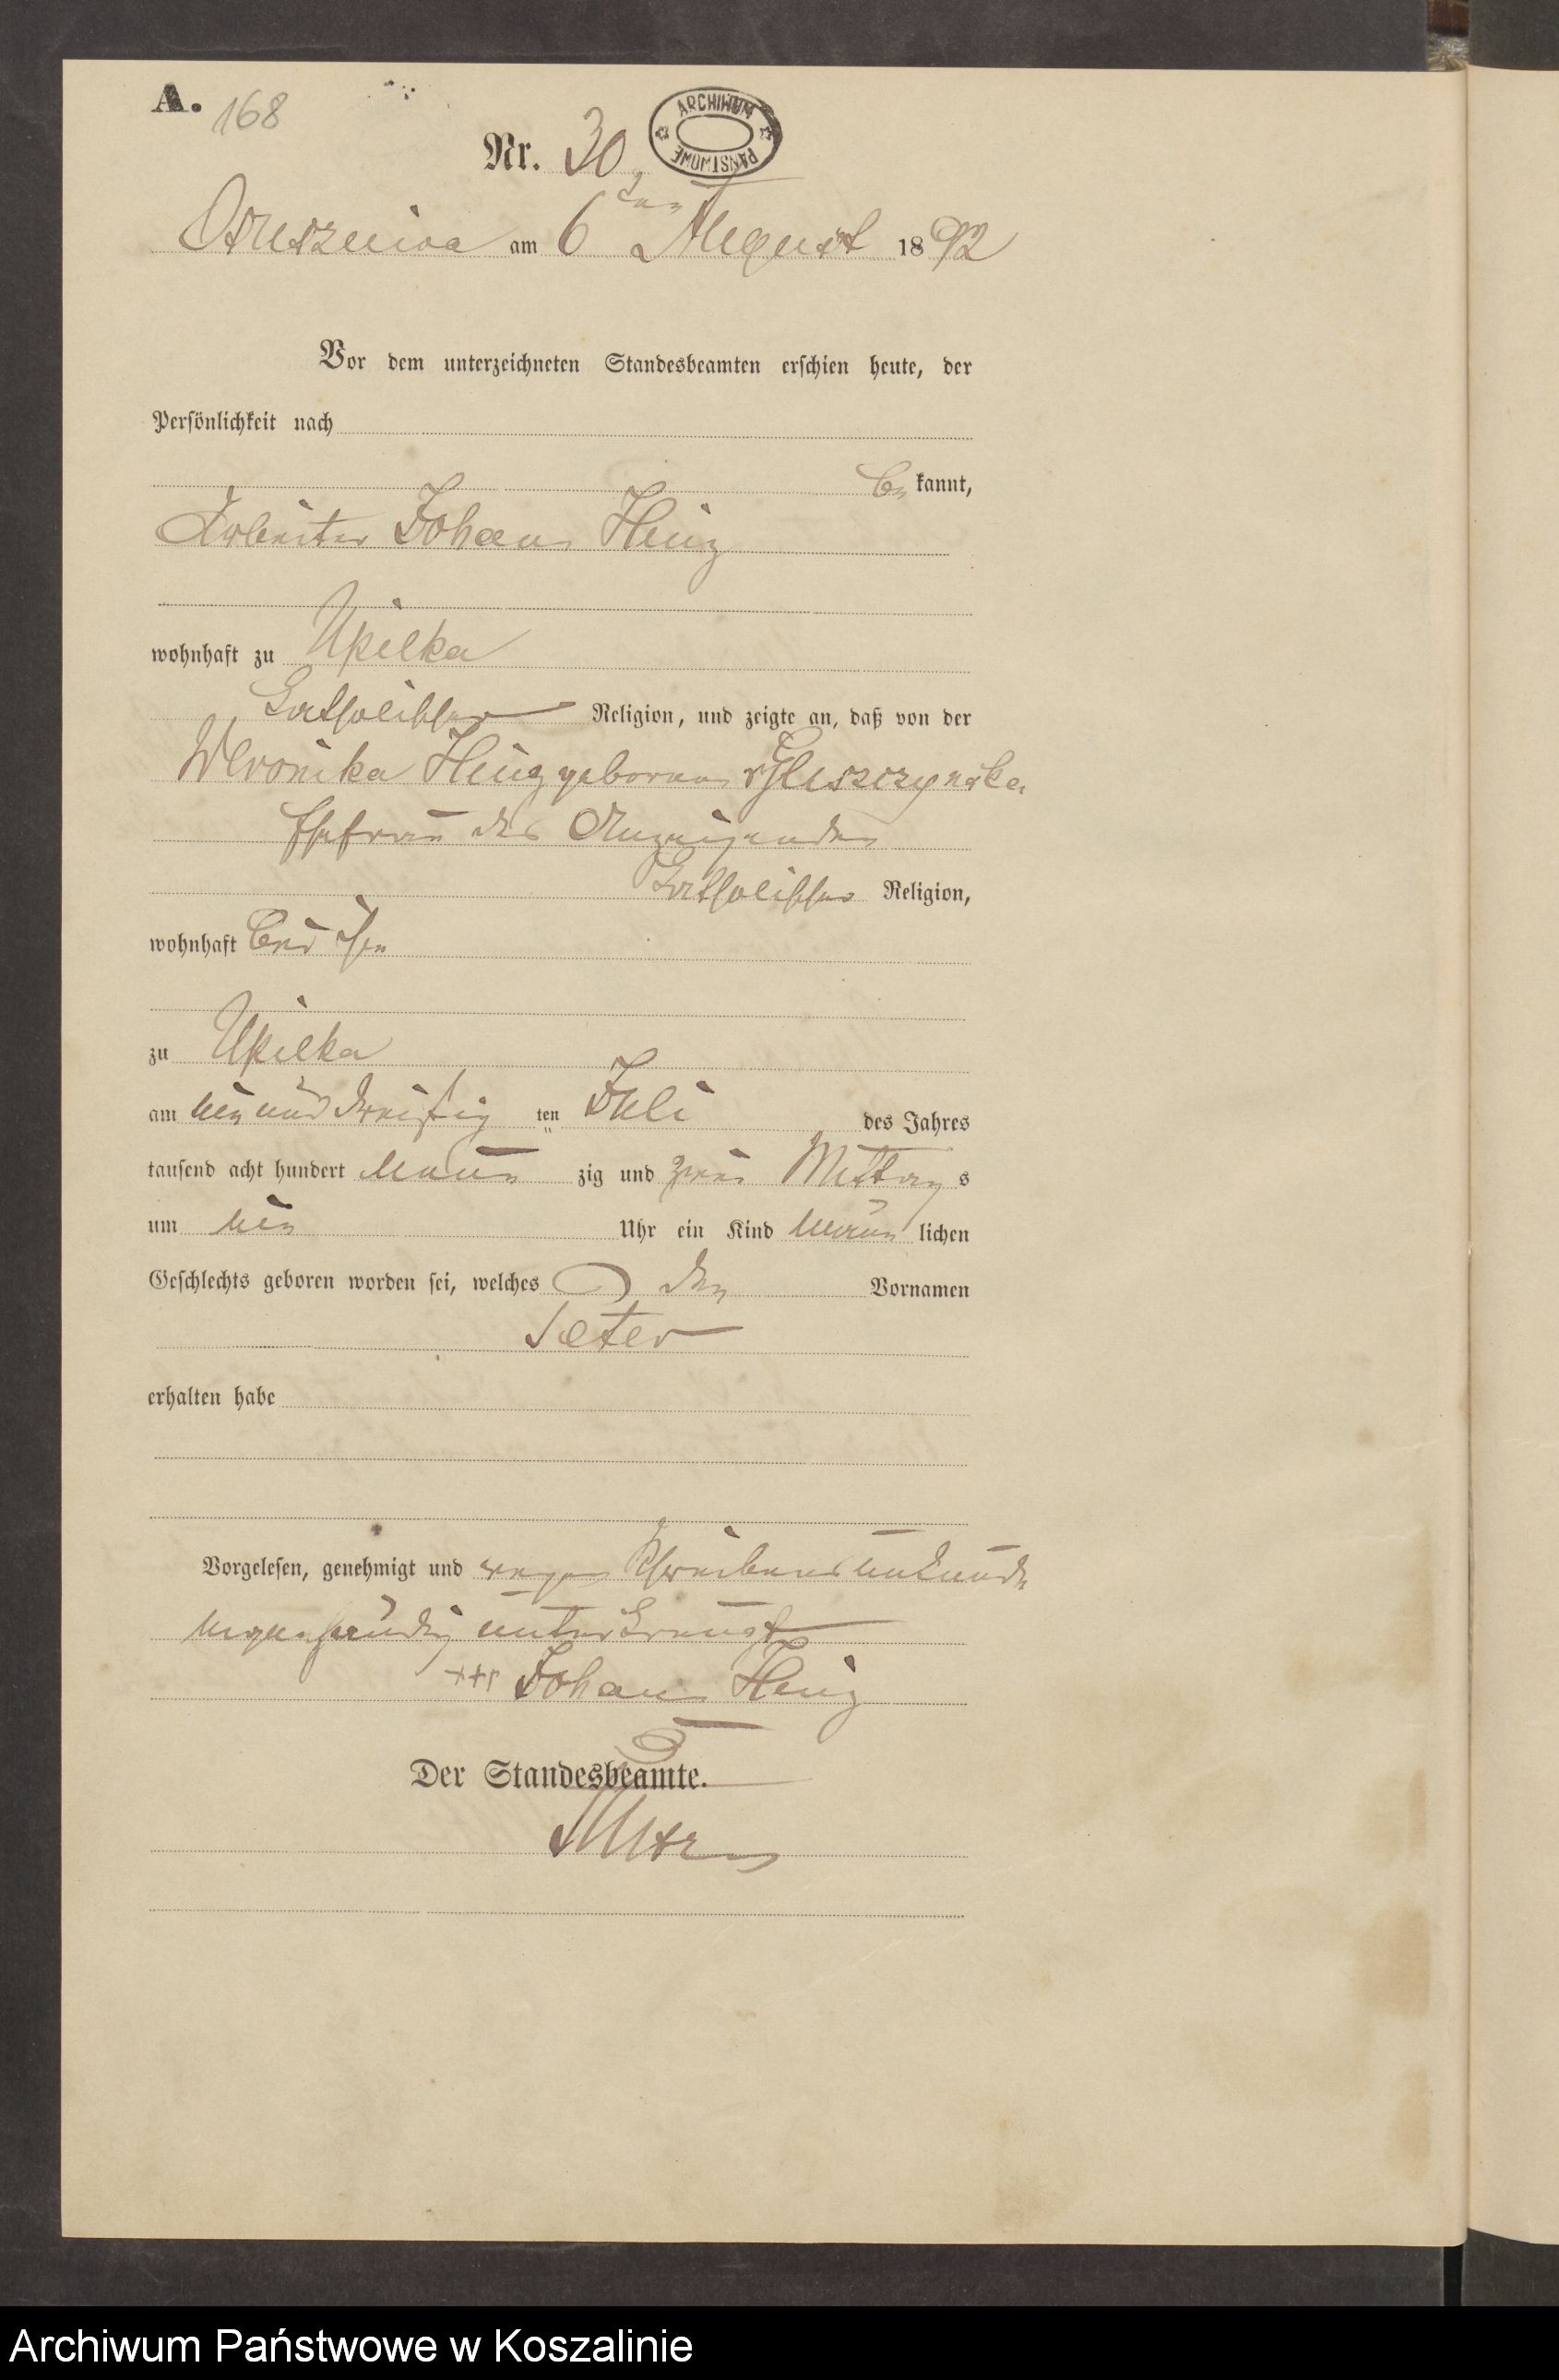 A. 168
Nr. 30
ARCHIWUM PAŃSTWOWE
Ostuszewa am 6ten August 1892
Vor dem unterzeichneten Standesbeamten erschien heute, der
Persönlichkeit nach
be kannt,
Arbeiter Johann Heinz
wohnhaft zu Upilka
katholischer Religion, und zeigte an, daß von der
Weronika Heinz geborenen
Ehefrau des Anzeigenden
katholischer Religion,
wohnhaft bei ihm
zu Upilka
am ein und dreißig ten Juli des Jahres
tausend acht hundert neun zig und zwei Mittag s
um ein Uhr ein Kind männ lichen
Geschlechts geboren worden sei, welches den Vornamen
Peter
erhalten habe
Vorgelesen, genehmigt und wegen Schreibensunkunde
eigenhändig unterkreuzt
+++ Johann Heinz
Der Standesbeamte.
Archiwum Państwowe w Koszalinie